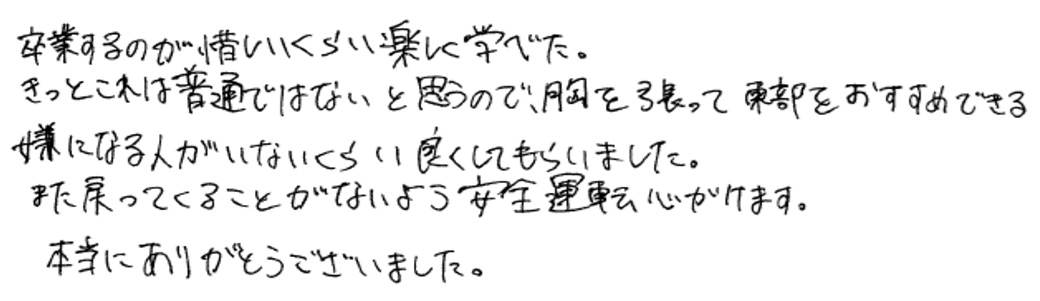 卒業するのが惜しいくらい楽しく学べた。
きっとこれは普通ではないと思うので、胸を張って東部をおすすめできる
嫌になる人がいないくらい良くしてもらいました。
また戻ってくることがないよう安全運転心がけます。
本当にありがとうございました。